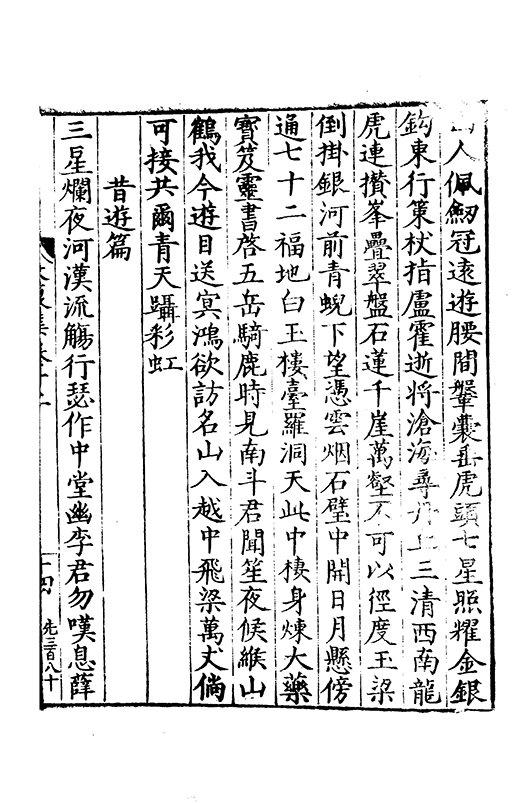 人佩劒冠遠遊腰間鞶囊垂虎頭七星照耀金銀
鈎東行策杖指盧霍逝将滄海尋丹丘三清西南龍
虎連攅峯疊翠盤石蓮千崖萬壑不可以徑度玉梁
倒掛銀河前青蜺下望憑雲烟石壁中開日月懸傍
通七十二福地白玉樓臺羅洞天此中棲身煉大藥
寳笈靈書啓五岳騎鹿時見南斗君聞笙夜候緱山
鶴我今遊目送㝠鴻欲訪名山入越中飛梁萬丈倘
可接共爾青天躡彩虹
昔遊篇
三星爛夜河漢流觴行瑟作中堂幽李君勿嘆息薛
十四